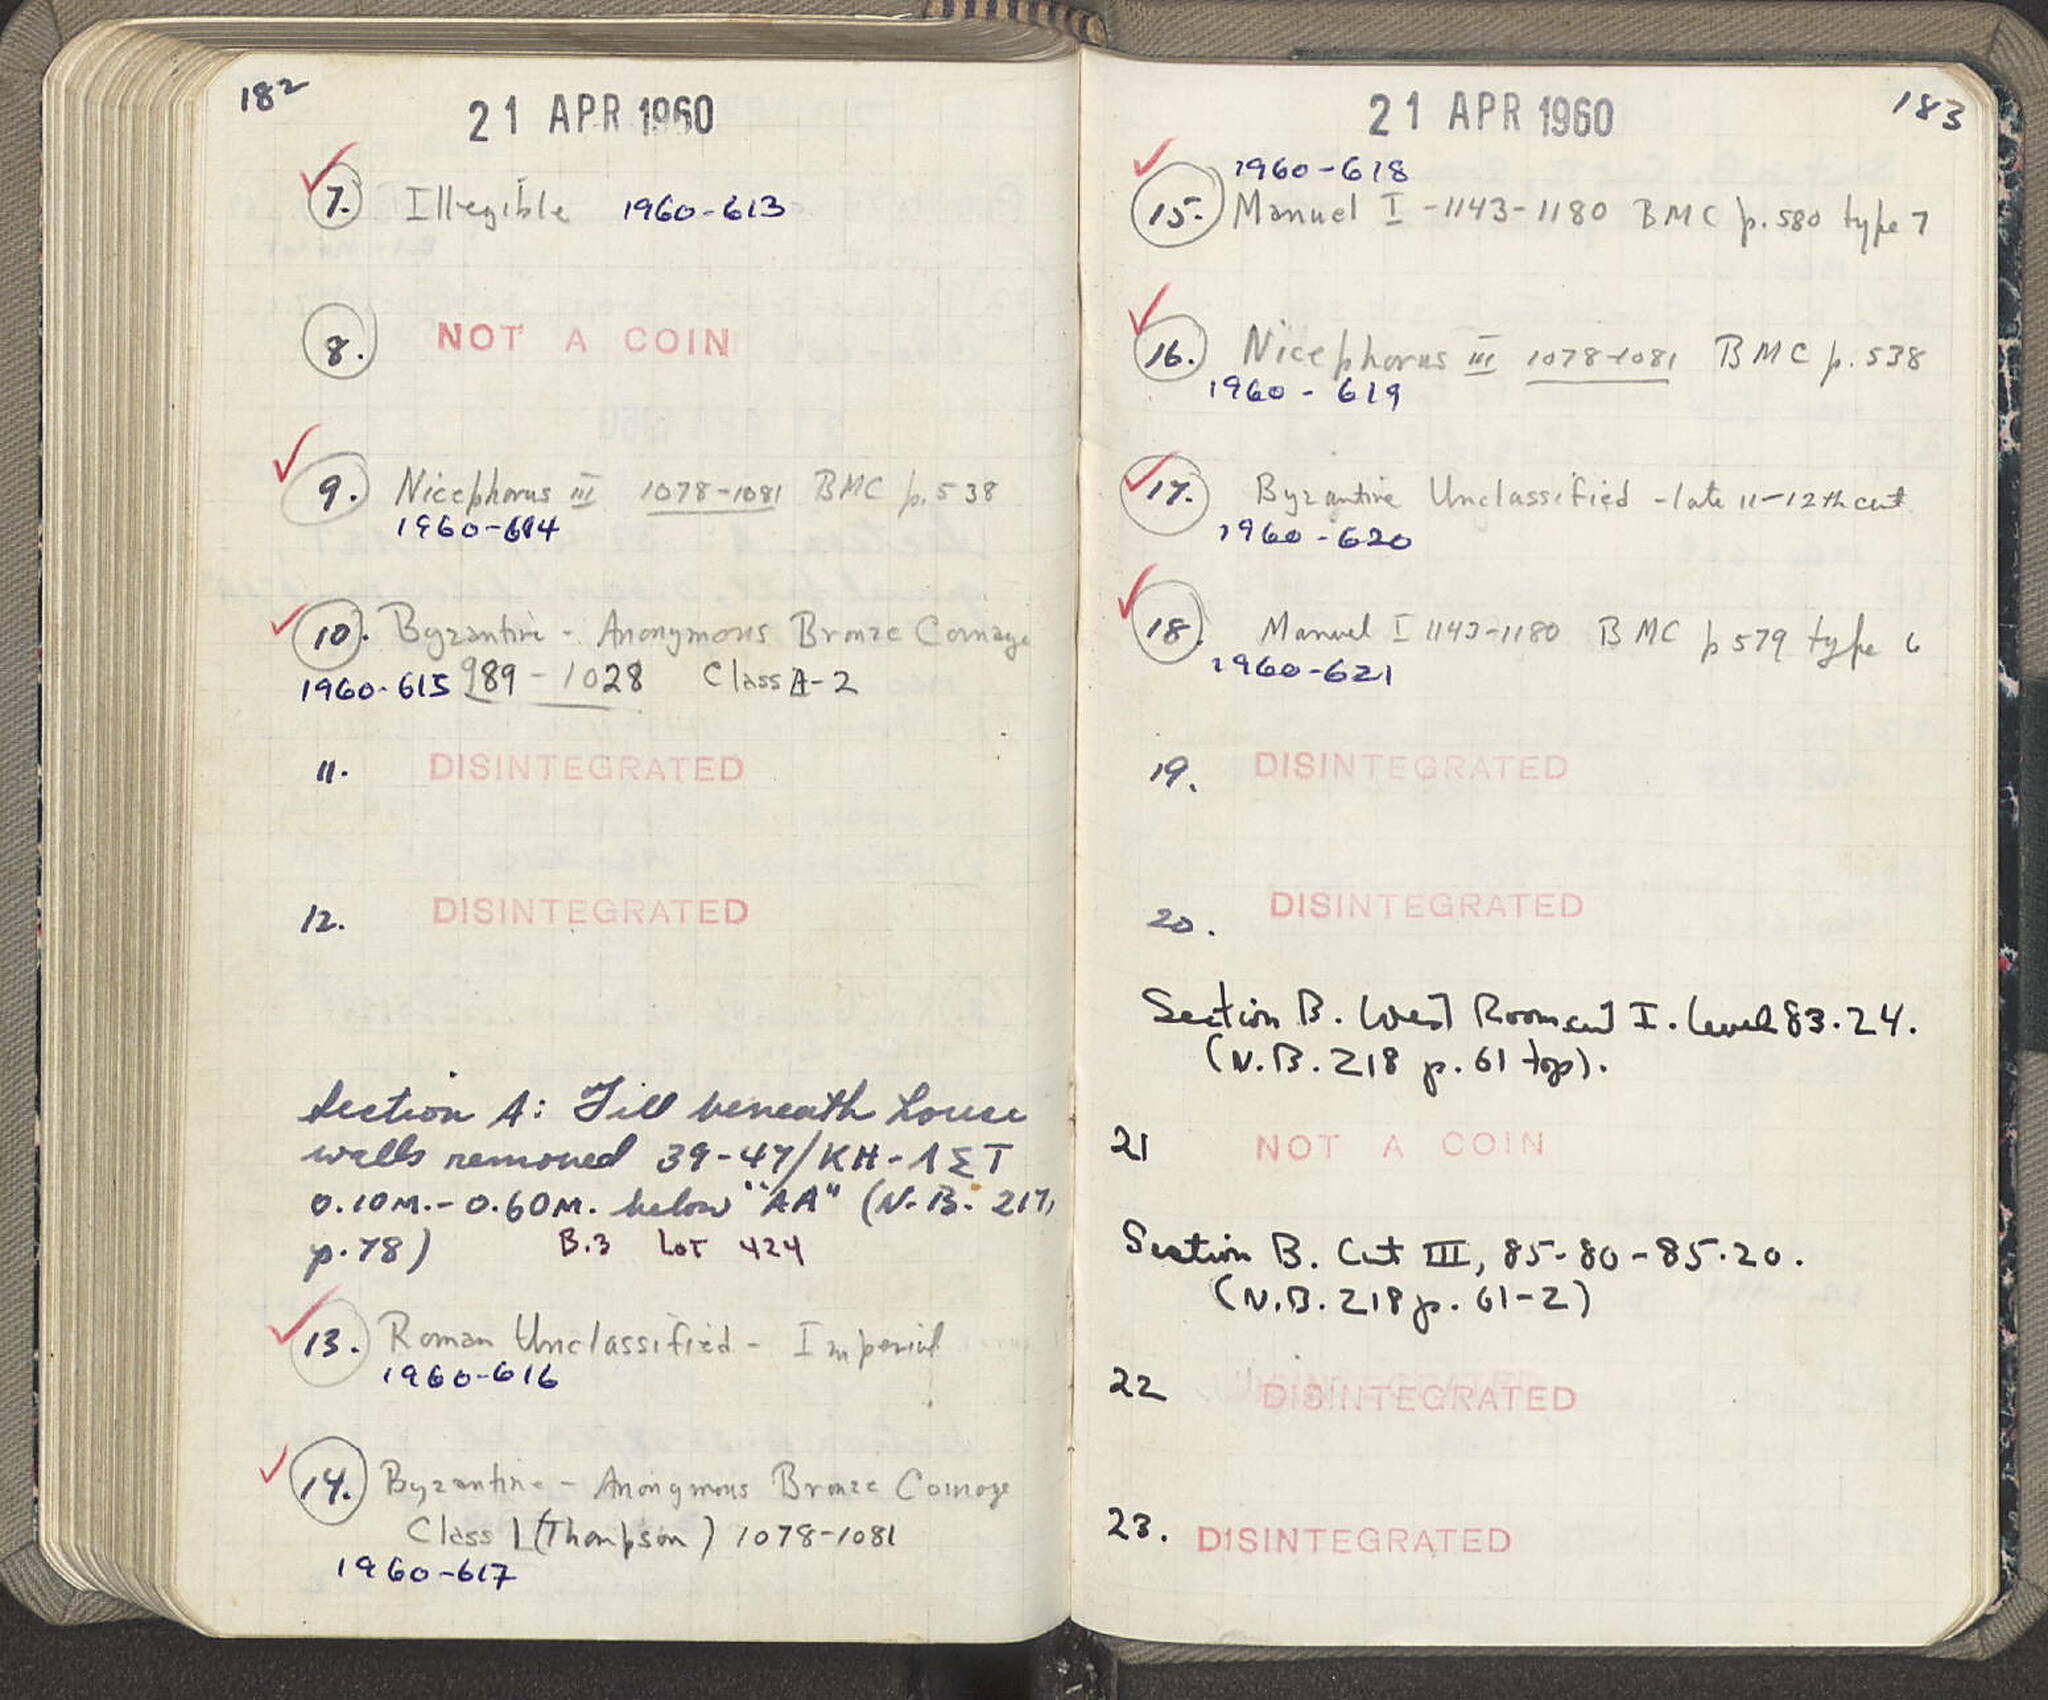 182
21 APR 1960
7. Illegible 1960-613
8. NOT A COIN
9. Nicephorus III 1078-1081 BMC p. 538
1960-614
10. Byzantine - Anonymous Bronze Coinage
1960-615 989-1028 Class A-2
11. DISINTEGRATED
12. DISINTEGRATED
Section A: Fill beneath house
walls removed 39-47/KH-ΛΣΤ
0.10M.-0.60M. below "AA" (N.B. 217,
p.78) B.3 Lot 424
13. Roman Unclassified - Imperial
1960-616
14. Byzantine - Anonymous Bronze Coinage
Class I (Thompson) 1078-1081
1960-617
183
21 APR 1960
1960-618
15. Manuel I -1143-1180 BMC p. 580 type 7
16. Nicephorus III 1078-1081 BMC p. 538
1960-619
17. Byzantine Unclassified - late 11-12th cent
1960-620
18. Manuel I 1143-1180 BMC p 579 type 6
1960-621
19. DISINTEGRATED
20. DISINTEGRATED
Section B. West Room I. Level 83.24.
(N.B. 218 p. 61 top).
21 NOT A COIN
Section B. Cut III, 85-80-85.20.
(N.B. 218 p. 61-2)
22 DISINTEGRATED
23. DISINTEGRATED